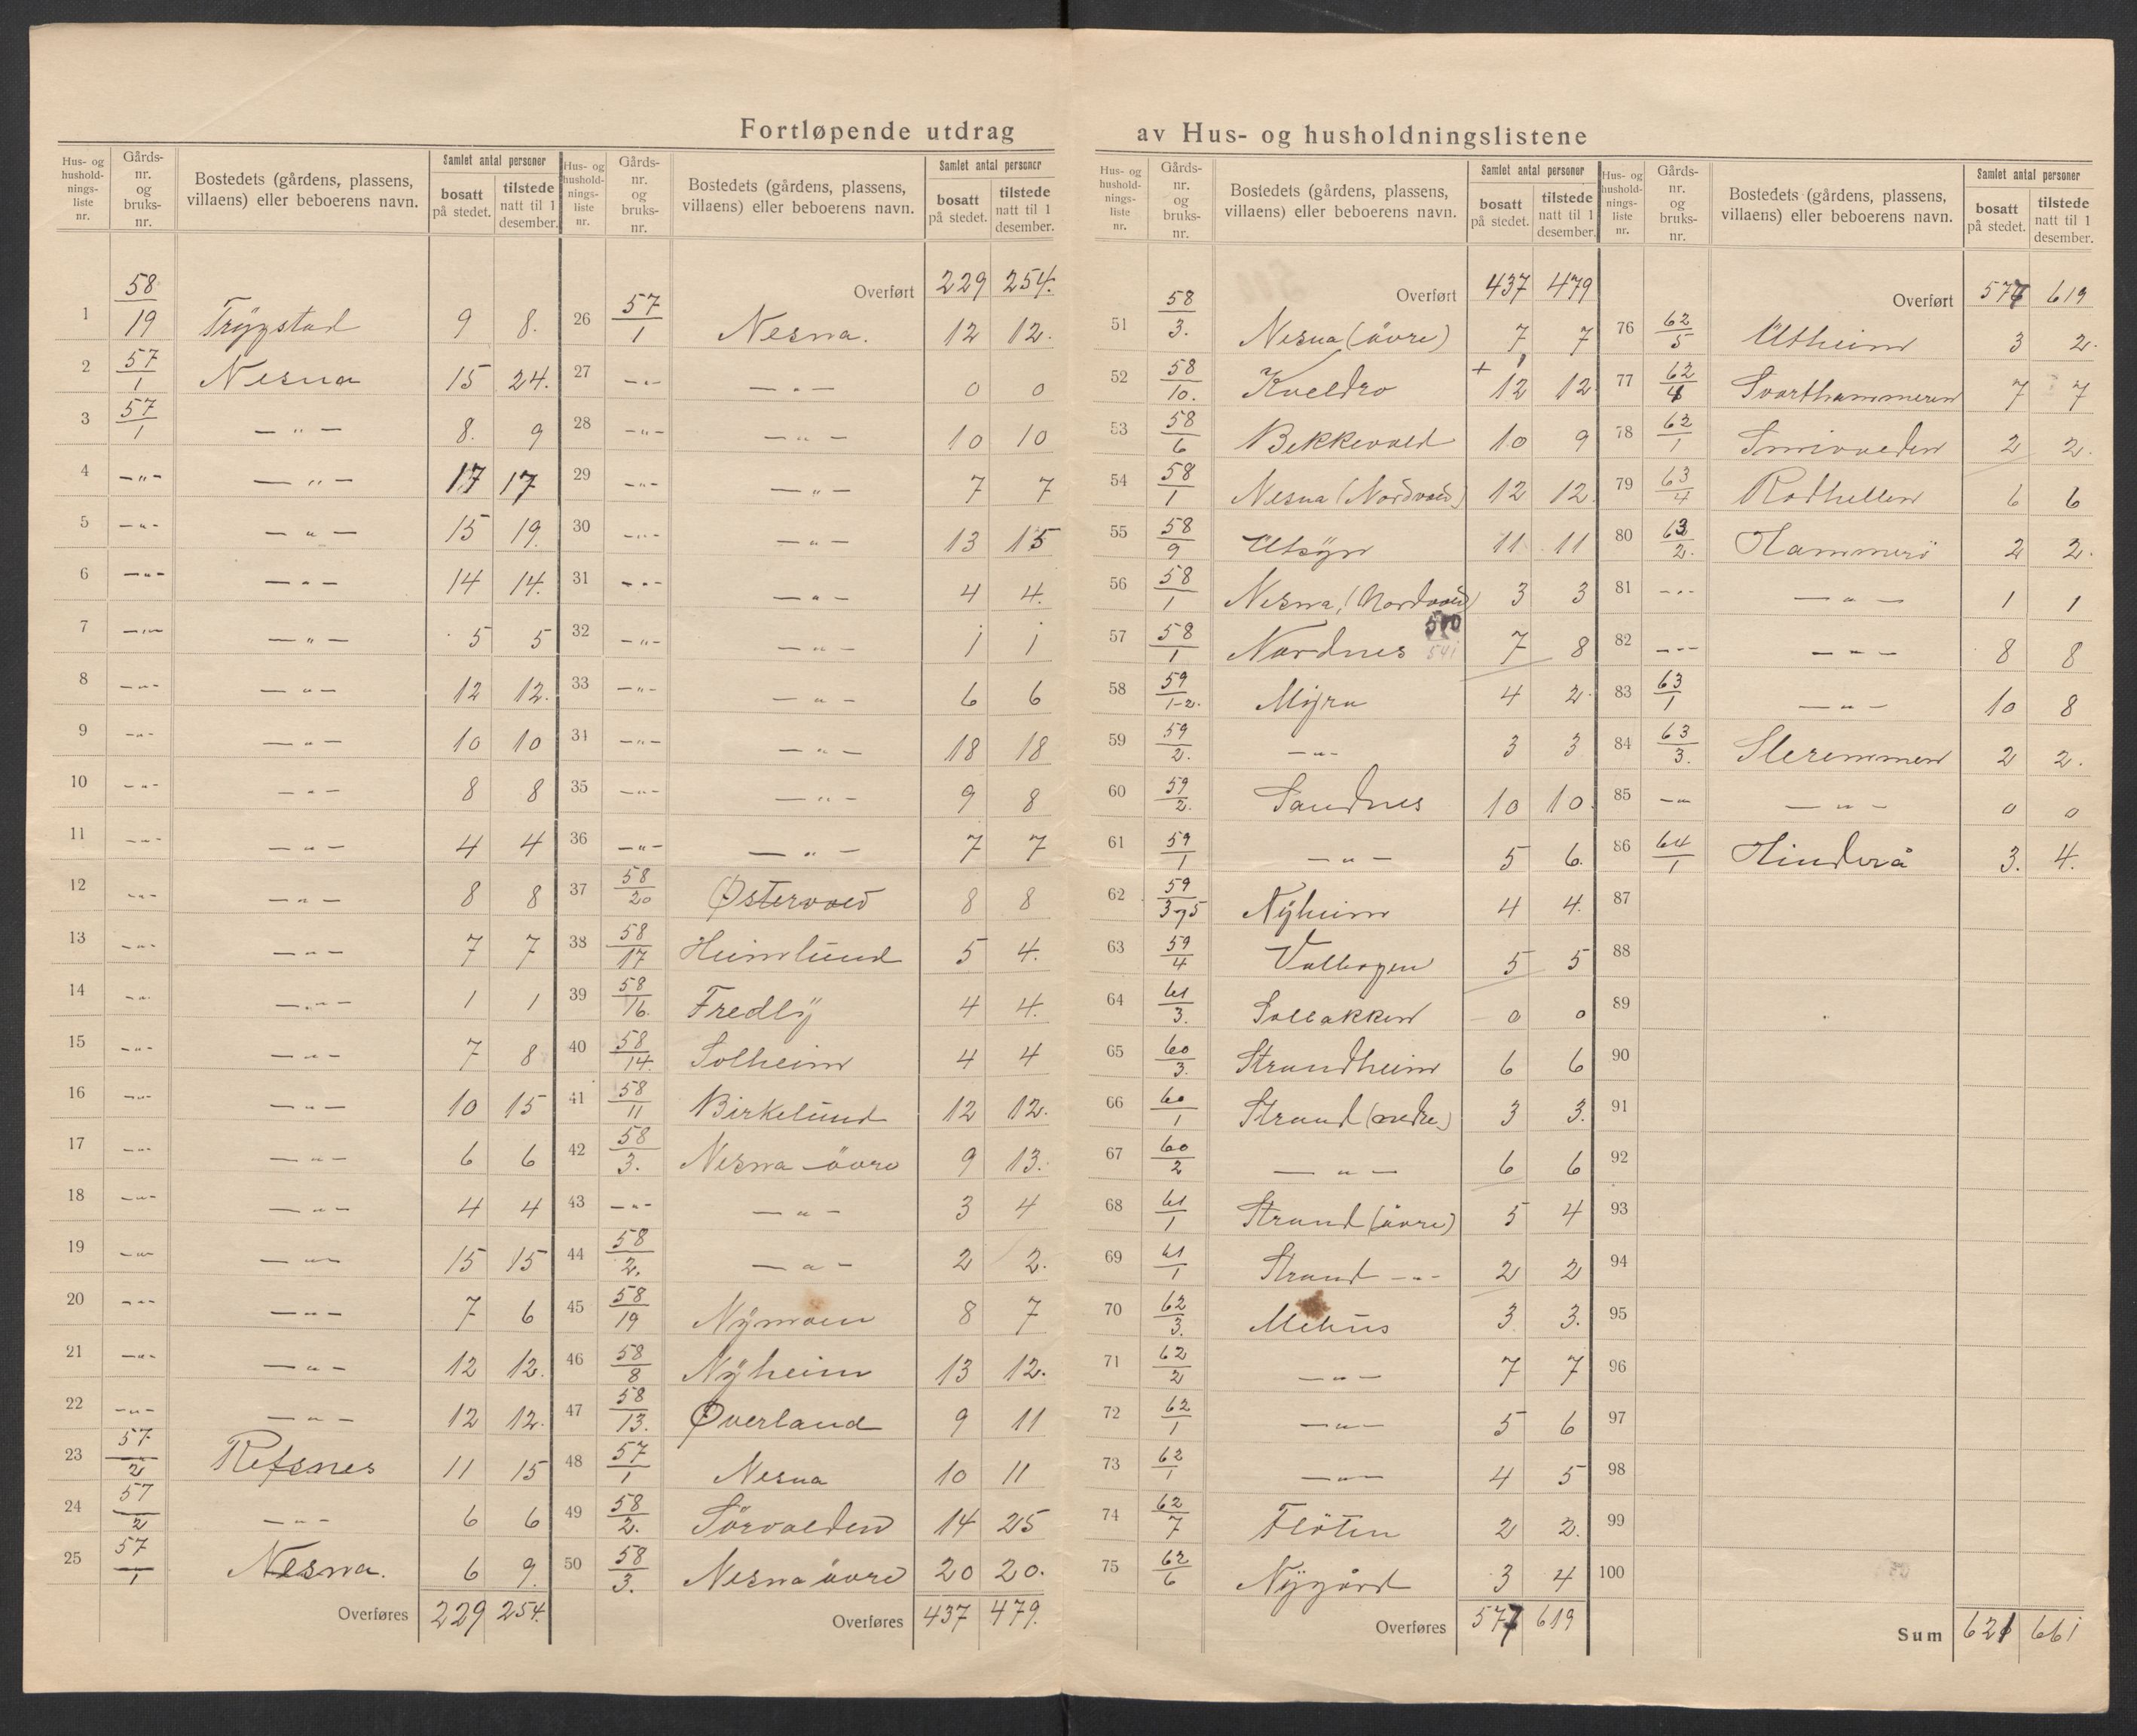 Fortløpende utdrag av Hus- og husholdningslistene
Hus- og husholdningsliste nr. | Gårds-nr. og bruks-nr. | Bostedets (gårdens, plassens, villaens) eller beboerens navn. | Samlet antal personer: bosatt på stedet. | tilstede natt til 1 desember.
1 58/19 Trÿgstad 9 8.
2 57/1 Nesna 15 24.
3 57/1 —"— 8. 9
4 —"— —"— 17 17
5 —"— —"— 15 19.
6 —"— —"— 14 14.
7 —"— —"— 5 5
8 —"— —"— 12 12.
9 —"— —"— 10 10
10 —"— —"— 8 8
11 —"— —"— 4 4
12 —"— —"— 8 8
13 —"— —"— 7 7
14 —"— —"— 1 1
15 —"— —"— 7 8
16 —"— —"— 10 15
17 —"— —"— 6 6
18 —"— —"— 4 4
19 —"— —"— 15 15
20 —"— —"— 7 6
21 —"— —"— 12 12.
22 —"— —"— 12 12.
23 57/2 Refsnes 11 15
24 57/2 —"— 6 6
25 57/1 Nesna. 6 9.
Overføres 229 254.
Hus- og husholdningsliste nr. | Gårds-nr. og bruks-nr. | Bostedets (gårdens, plassens, villaens) eller beboerens navn. | Samlet antal personer: bosatt på stedet. | tilstede natt til 1 desember.
Overført 229 254.
26 57/1 Nesna. 12 12.
27 —"— —"— 0 0
28 —"— —"— 10 10
29 —"— —"— 7 7
30 —"— —"— 13 15
31 —"— —"— 4 4.
32 —"— —"— 1 1
33 —"— —"— 6 6
34 —"— —"— 18 18
35 —"— —"— 9 8
36 —"— —"— 7 7
37 58/20 Østervold 8 8
38 58/17 Heimlund 5 4.
39 58/16. Fredlÿ 4 4.
40 58/14. Solheim 4 4
41 58/11 Birkelund 12 12.
42 58/3. Nesna övre 9 13.
43 —"— —"— 3 4
44 58/2. —"— 2 2.
45 58/19 Nÿmoen 8 7
46 58/8 Nÿheim 13 12.
47 58/13. Øverland 9 11
48 57/1 Nesna 10 11
49 58/2. Sörvolden 14 25
50 58/3. Nesna övre 20 20.
Overføres 437 479.
Hus- og husholdningsliste nr. | Gårds-nr. og bruks-nr. | Bostedets (gårdens, plassens, villaens) eller beboerens navn. | Samlet antal personer: bosatt på stedet. | tilstede natt til 1 desember.
Overført 437 479
51 58/3. Nesna (övre) 7 7
52 58/10. Kveldro + 12 12
53 58/6 Bekkevold 10 9
54 58/1 Nesna (Nordvold) 12 12.
55 58/9 Utsÿn 11 11
56 58/1 Nesna, (Nordvold) 3 3
57 58/1 Nordnes 541 7 8
58 59/1-2. Mÿra 4 2.
59 59/2. —"— 3 3
60 59/2. Sandnes 10 10
61 59/1 —"— 5 6.
62 59/3 og 5 Nÿheim 4 4.
63 59/4 Valhogen 5 5
64 61/3. Solbakken 0 0
65 60/3. Strandheim 6 6
66 60/1 Strand (nedre) 3 3.
67 60/2 —"— 6 6
68 61/1 Strand (övre) 5 4
69 61/1 Strand —"— 2 2
70 62/3. Mehus 3 3.
71 62/2 —"— 7 7
72 62/1 —"— 5 6
73 62/1 —"— 4 5
74 62/7 Flöten 2 2.
75 62/6 Nÿgård 3 4
Overføres 577 619
Hus- og husholdningsliste nr. | Gårds-nr. og bruks-nr. | Bostedets (gårdens, plassens, villaens) eller beboerens navn. | Samlet antal personer: bosatt på stedet. | tilstede natt til 1 desember.
Overført 577 619
76 62/5 Utheim 3 2.
77 62/4 Svarthammeren 7 7
78 62/1 Smivolden 2 2.
79 63/4 Rödhellen 6 6
80 63/2. Hammerö 2 2.
81 —"— —"— 1 1
82 —"— —"— 8 8
83 63/1 —"— 10 8
84 63/3. Steremmen 2 2.
85 —"— —"— 0 0
86 64/1 Hinderå 3. 4.
87
88
89
90
91
92
93
94
95
96
97
98
99
100
Sum 621 661